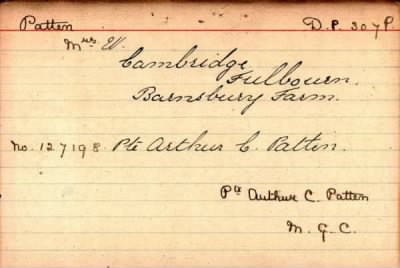 Patten D.P. 307P.
Mrs W.
Cambridge
Fulbourn.
Barnsbury Farm.
No. 127198 Pte Arthur C. Patten.
Pte Arthur C. Patten
M. G. C.